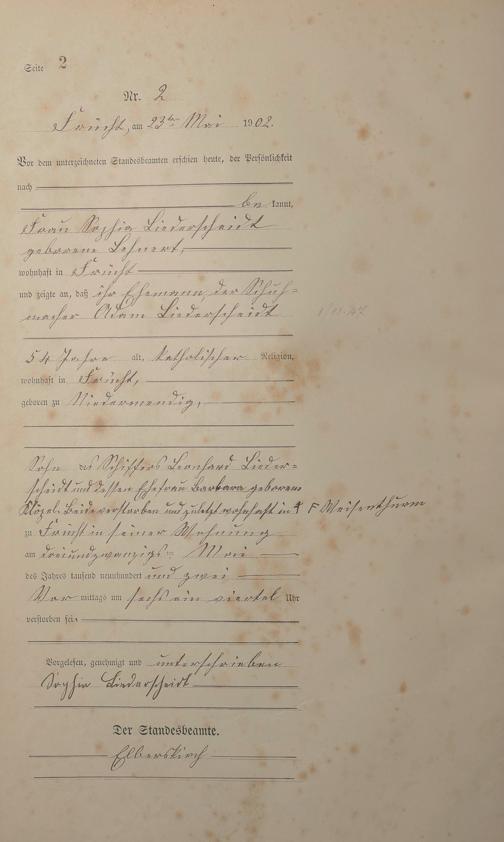 Seite 2
Nr. 2
Frücht, am 23ten Mai 1902.
Vor dem unterzeichneten Standesbeamten erschien heute, der Persönlichkeit
nach
be kannt,
Frau Sophia Liederscheidt
geborene Lehnert,
wohnhaft in Frücht
und zeigte an, daß ihr Ehemann, der Schuh=
macher Adam Liederscheidt
54 Jahre alt, katholischer Religion,
wohnhaft in Frücht,
geboren zu Niedermendig,
Sohn des Schiffers Leonhard Lieder=
scheidt und dessen Ehefrau Barbara geborene
Beide verstorben und zuletzt wohnhaft in Weisenthurm
zu Frücht in seiner Wohnung
am dreiundzwanzigsten Mai
des Jahres tausend neunhundert und zwei
Vor mittags um sechs ein viertel Uhr
verstorben sei.
Vorgelesen, genehmigt und unterschrieben
Sophia Liederscheidt
Der Standesbeamte.
Elberskirch